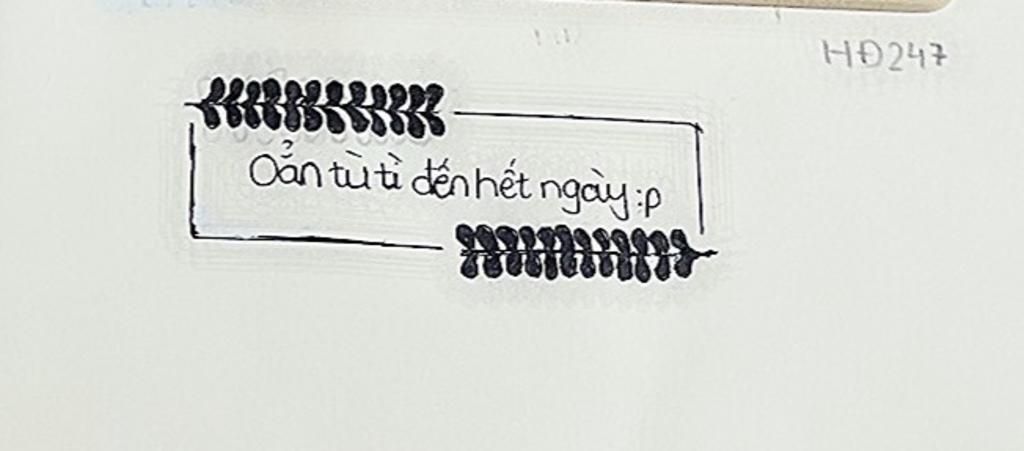 HĐ247
Oẳn tù tì đến hết ngày :p